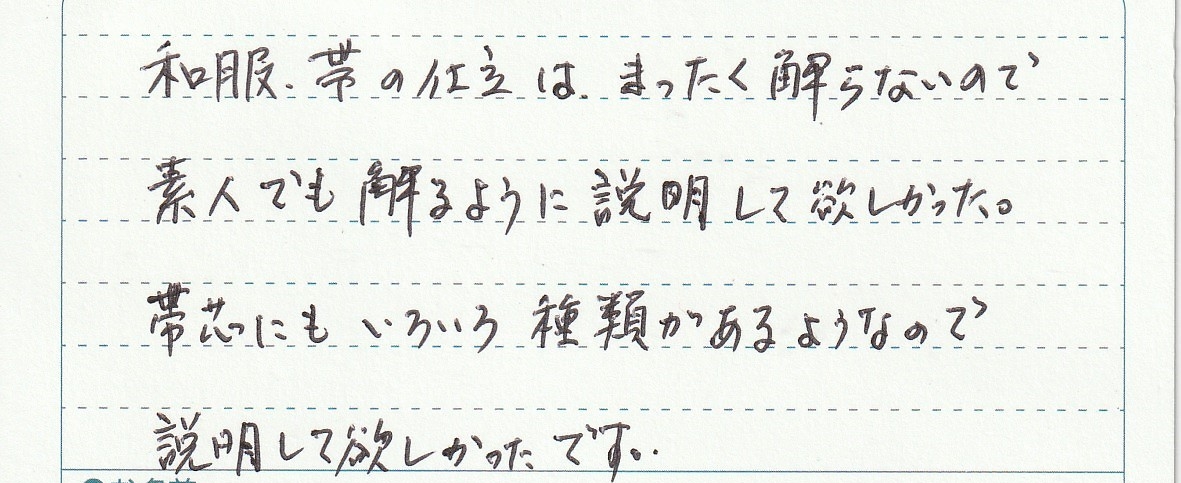 和服、帯の仕立は、まったく解らないので
素人でも解るように説明して欲しかった。
帯芯にもいろいろ種類があるようなので
説明して欲しかったです。